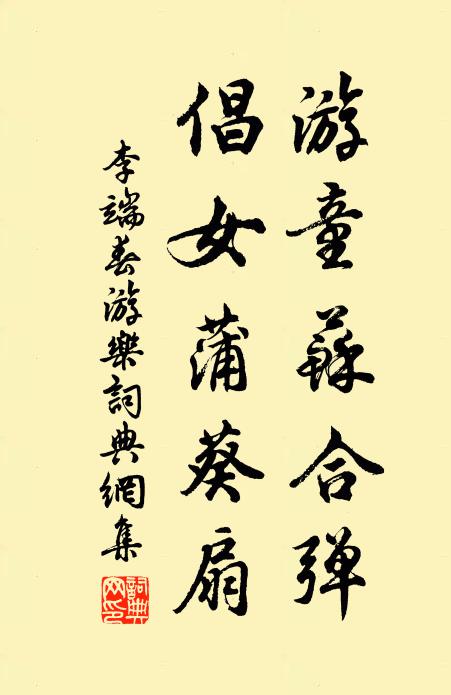 游童蘇合弹
倡女蒲葵扇
李端春游樂詞典網集